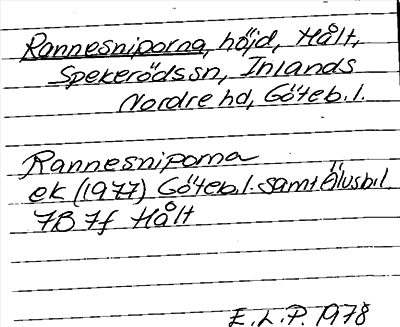 Rannesniporna, höjd, Hålt,
Spekeröds sn, Inlands
Nordre hd, Göteb. l.
Rannesniporna
ek (1977) Göteb. l. samt Älvsb. l
7B 7f Hålt
E. L. P. 1978